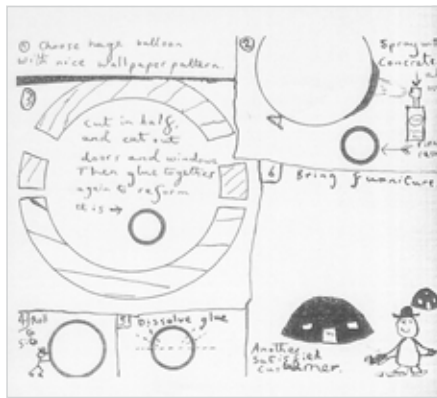 ① Choose huge balloon
with nice wallpaper pattern.
②
Spray wit
Concrete
③
cut in half,
and cut out
doors and windows
Then glue together
again to reform
it is →
4) Roll
to
5) Dissolve glue
6 Bring furniture
Another
satisfied
customer.